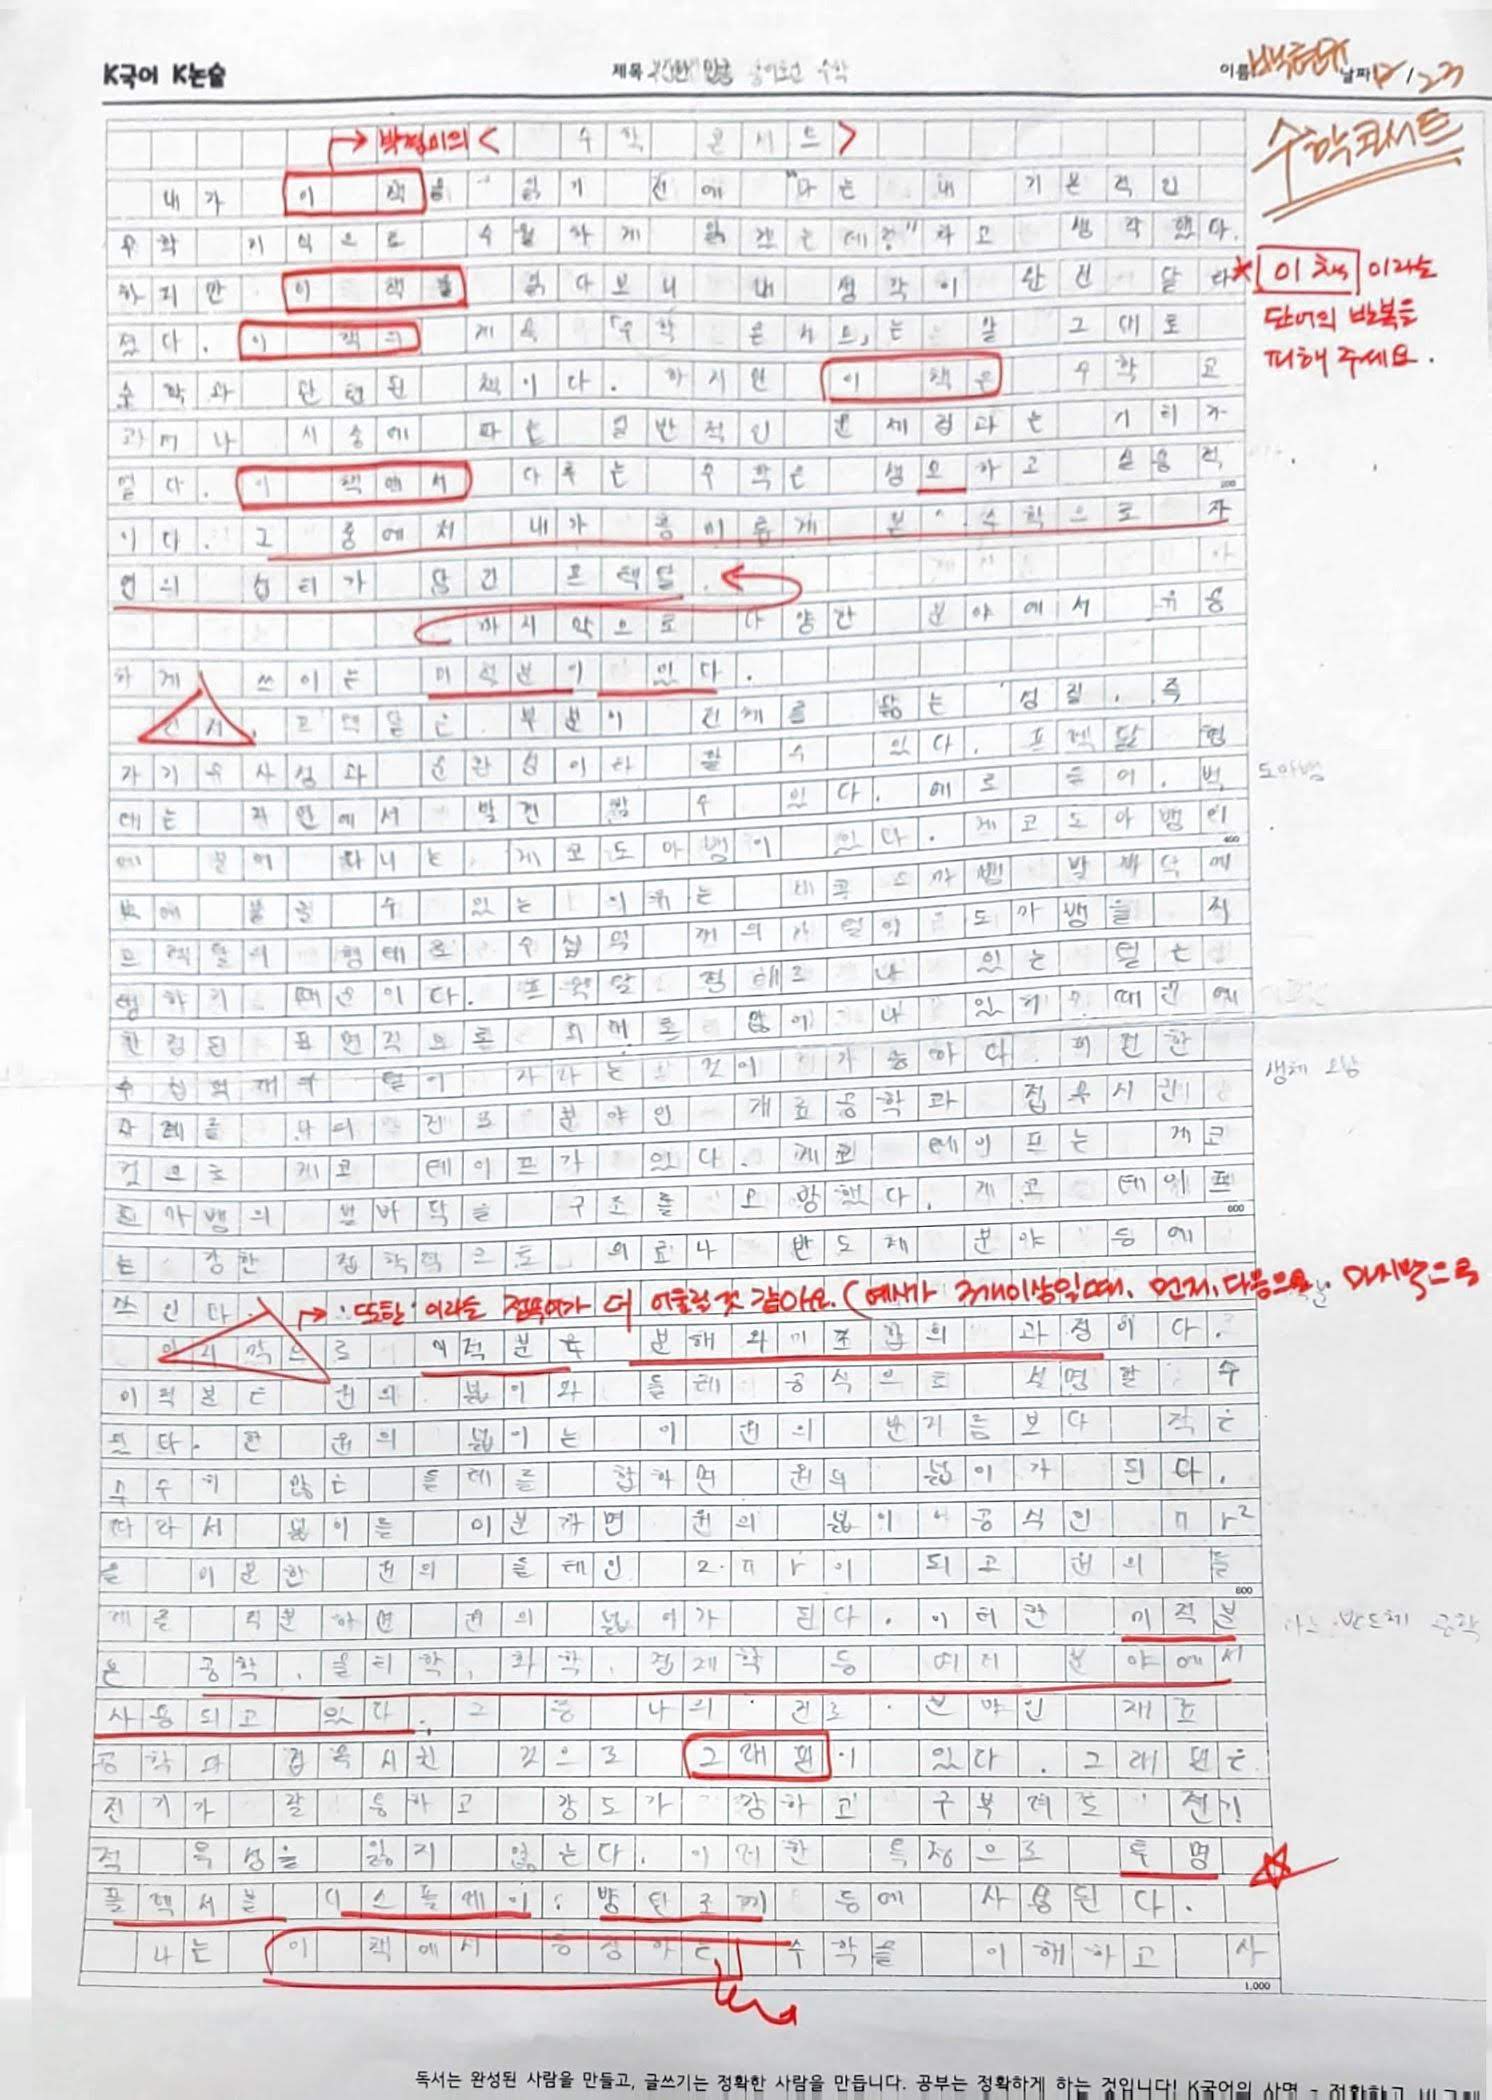 K국어 K논술
제목 수학
이름 날짜 12/23
박경미의 < 수학 콘서트 >
수학콘서트
내가 이 책을 읽기 전에 "나는 내 기본적인
수학 지식으로 수월하게 읽겠는데?"라고 생각했다.
하지만 이 책을 읽다보니 내 생각이 완전 달라
졌다. 이 책의 제목 「수학 콘서트」는 말 그대로
수학과 관련된 책이다. 하지만 이 책은 수학 교
과서나 시중에 파는 일반적인 문제집과는 거리가
멀다. 이 책에서 다루는 수학은 생소하고 실용적
200
이다. 그 중에서 내가 흥미롭게 본 수학으로 자
연의 섭리가 담긴 프랙탈
마지막으로 다양한 분야에서 유용
하게 쓰이는 미적분이 있다.
* 이 책 이라는
단어의 반복을
피해 주세요.
먼저, 프랙탈은 부분이 전체를 닮는 성질, 즉
자기유사성과 순환성이라 할 수 있다. 프랙탈 형
태는 자연에서 발견할 수 있다. 예로 들어, 벽
에 붙어 다니는 게코도마뱀이 있다. 게코도마뱀이
400
벽에 붙을 수 있는 이유는 게코도마뱀 발바닥에
프랙탈의 형태로 수십억 개의
때문이다. 프랙탈 형태로 나 있는 털은
한정된 표면적으로 나 있기 때문에
수십억개의 털이 자라는 것이 가능하다. 이러한
사례를 나의 진로 분야인 재료공학과 접목시킨
것으로 게코 테이프가 있다. 게코 테이프는 게코
도마뱀의 발바닥 구조를 모방했다. 게코 테이프
600
는 강한 접착력으로 의료나 반도체 분야 등에
쓰인다.
도마뱀
생체 모방
→ '또한' 이라는 접속어가 더 어울릴것 같아요. (예시가 3개이상일때, 먼저, 다음으로, 마지막으로
마지막으로 미적분은 분해와 재조합의 과정이다.
미적분은 원의 넓이와 둘레 공식으로 설명할 수
있다. 한 원의 넓이는 이 원의 반지름보다 작은
무수히 많은 둘레를 합하면 원의 넓이가 된다.
따라서 넓이를 미분하면 원의 넓이 공식인 πr²
을 미분한 원의 둘레인 2πr이 되고 원의 둘
800
레를 적분하면 원의 넓이가 된다. 이러한 미적분
은 공학, 물리학, 화학, 경제학 등 여러 분야에서
사용되고 있다. 그 중 나의 진로 분야인 재료
공학과 접목시킨 것으로 그래핀이 있다. 그래핀은
전기가 잘 통하고 강도가 강하고 구부려도 전기
적 특성을 잃지 않는다. 이러한 특징으로 투명
플랙서블 디스플레이, 방탄조끼 등에 사용된다.
나는 이 책에서 수학을 이해하고 사
1,000
반도체 공학
독서는 완성된 사람을 만들고, 글쓰기는 정확한 사람을 만듭니다. 공부는 정확하게 하는 것입니다! K국어의 사명 - 정확하고